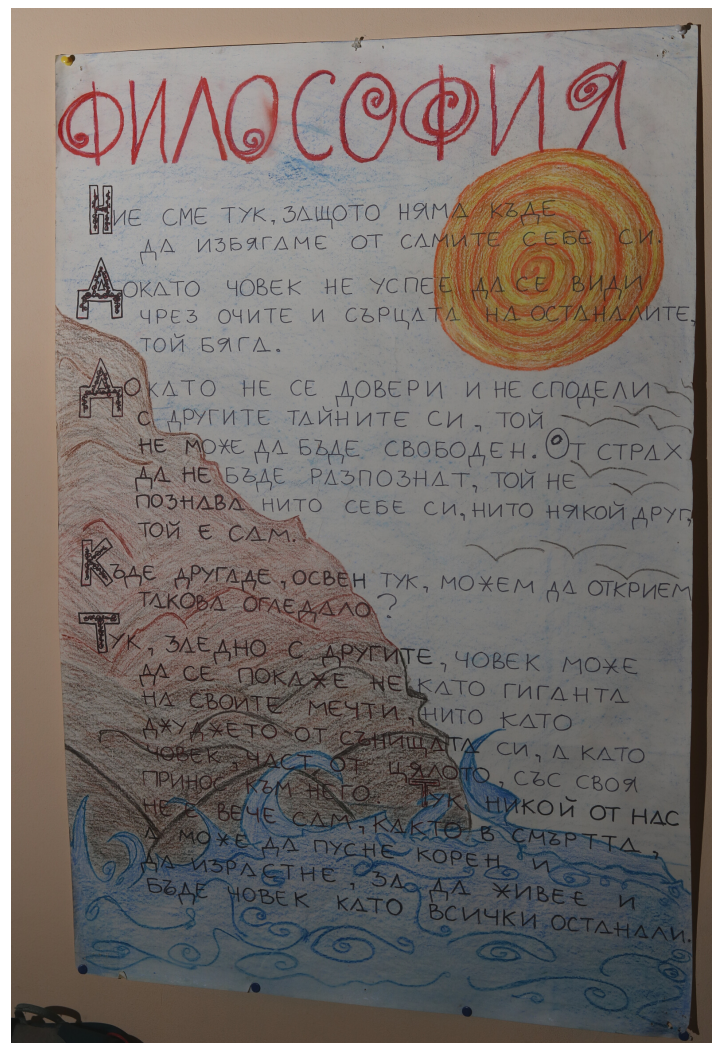 ФИЛОСОФИЯ
НИЕ СМЕ ТУК, ЗАЩОТО НЯМА КЪДЕ
ДА ИЗБЯГАМЕ ОТ САМИТЕ СЕБЕ СИ.
ДОКАТО ЧОВЕК НЕ УСПЕЕ ДА СЕ ВИДИ
ЧРЕЗ ОЧИТЕ И СЪРЦАТА НА ОСТАНАЛИТЕ,
ТОЙ БЯГА.
ДОКАТО НЕ СЕ ДОВЕРИ И НЕ СПОДЕЛИ
С ДРУГИТЕ ТАЙНИТЕ СИ, ТОЙ
НЕ МОЖЕ ДА БЪДЕ СВОБОДЕН. ОТ СТРАХ
ДА НЕ БЪДЕ РАЗПОЗНАТ, ТОЙ НЕ
ПОЗНАВА НИТО СЕБЕ СИ, НИТО НЯКОЙ ДРУГ,
ТОЙ Е САМ.
КЪДЕ ДРУГАДЕ, ОСВЕН ТУК, МОЖЕМ ДА ОТКРИЕМ
ТАКОВА ОГЛЕДАЛО?
ТУК, ЗАЕДНО С ДРУГИТЕ, ЧОВЕК МОЖЕ
ДА СЕ ПОКАЖЕ НЕ КАТО ГИГАНТА
НА СВОИТЕ МЕЧТИ, НИТО КАТО
ДЖУДЖЕТО ОТ СЪНИЩАТА СИ, А КАТО
ЧОВЕК, ЧАСТ ОТ ЦЯЛОТО, СЪС СВОЯ
ПРИНОС КЪМ НЕГО. ТУК НИКОЙ ОТ НАС
НЕ Е ВЕЧЕ САМ, КАКТО В СМЪРТТА,
А МОЖЕ ДА ПУСНЕ КОРЕН И
ДА ИЗРАСТНЕ, ЗА ДА ЖИВЕЕ И
БЪДЕ ЧОВЕК КАТО ВСИЧКИ ОСТАНАЛИ.